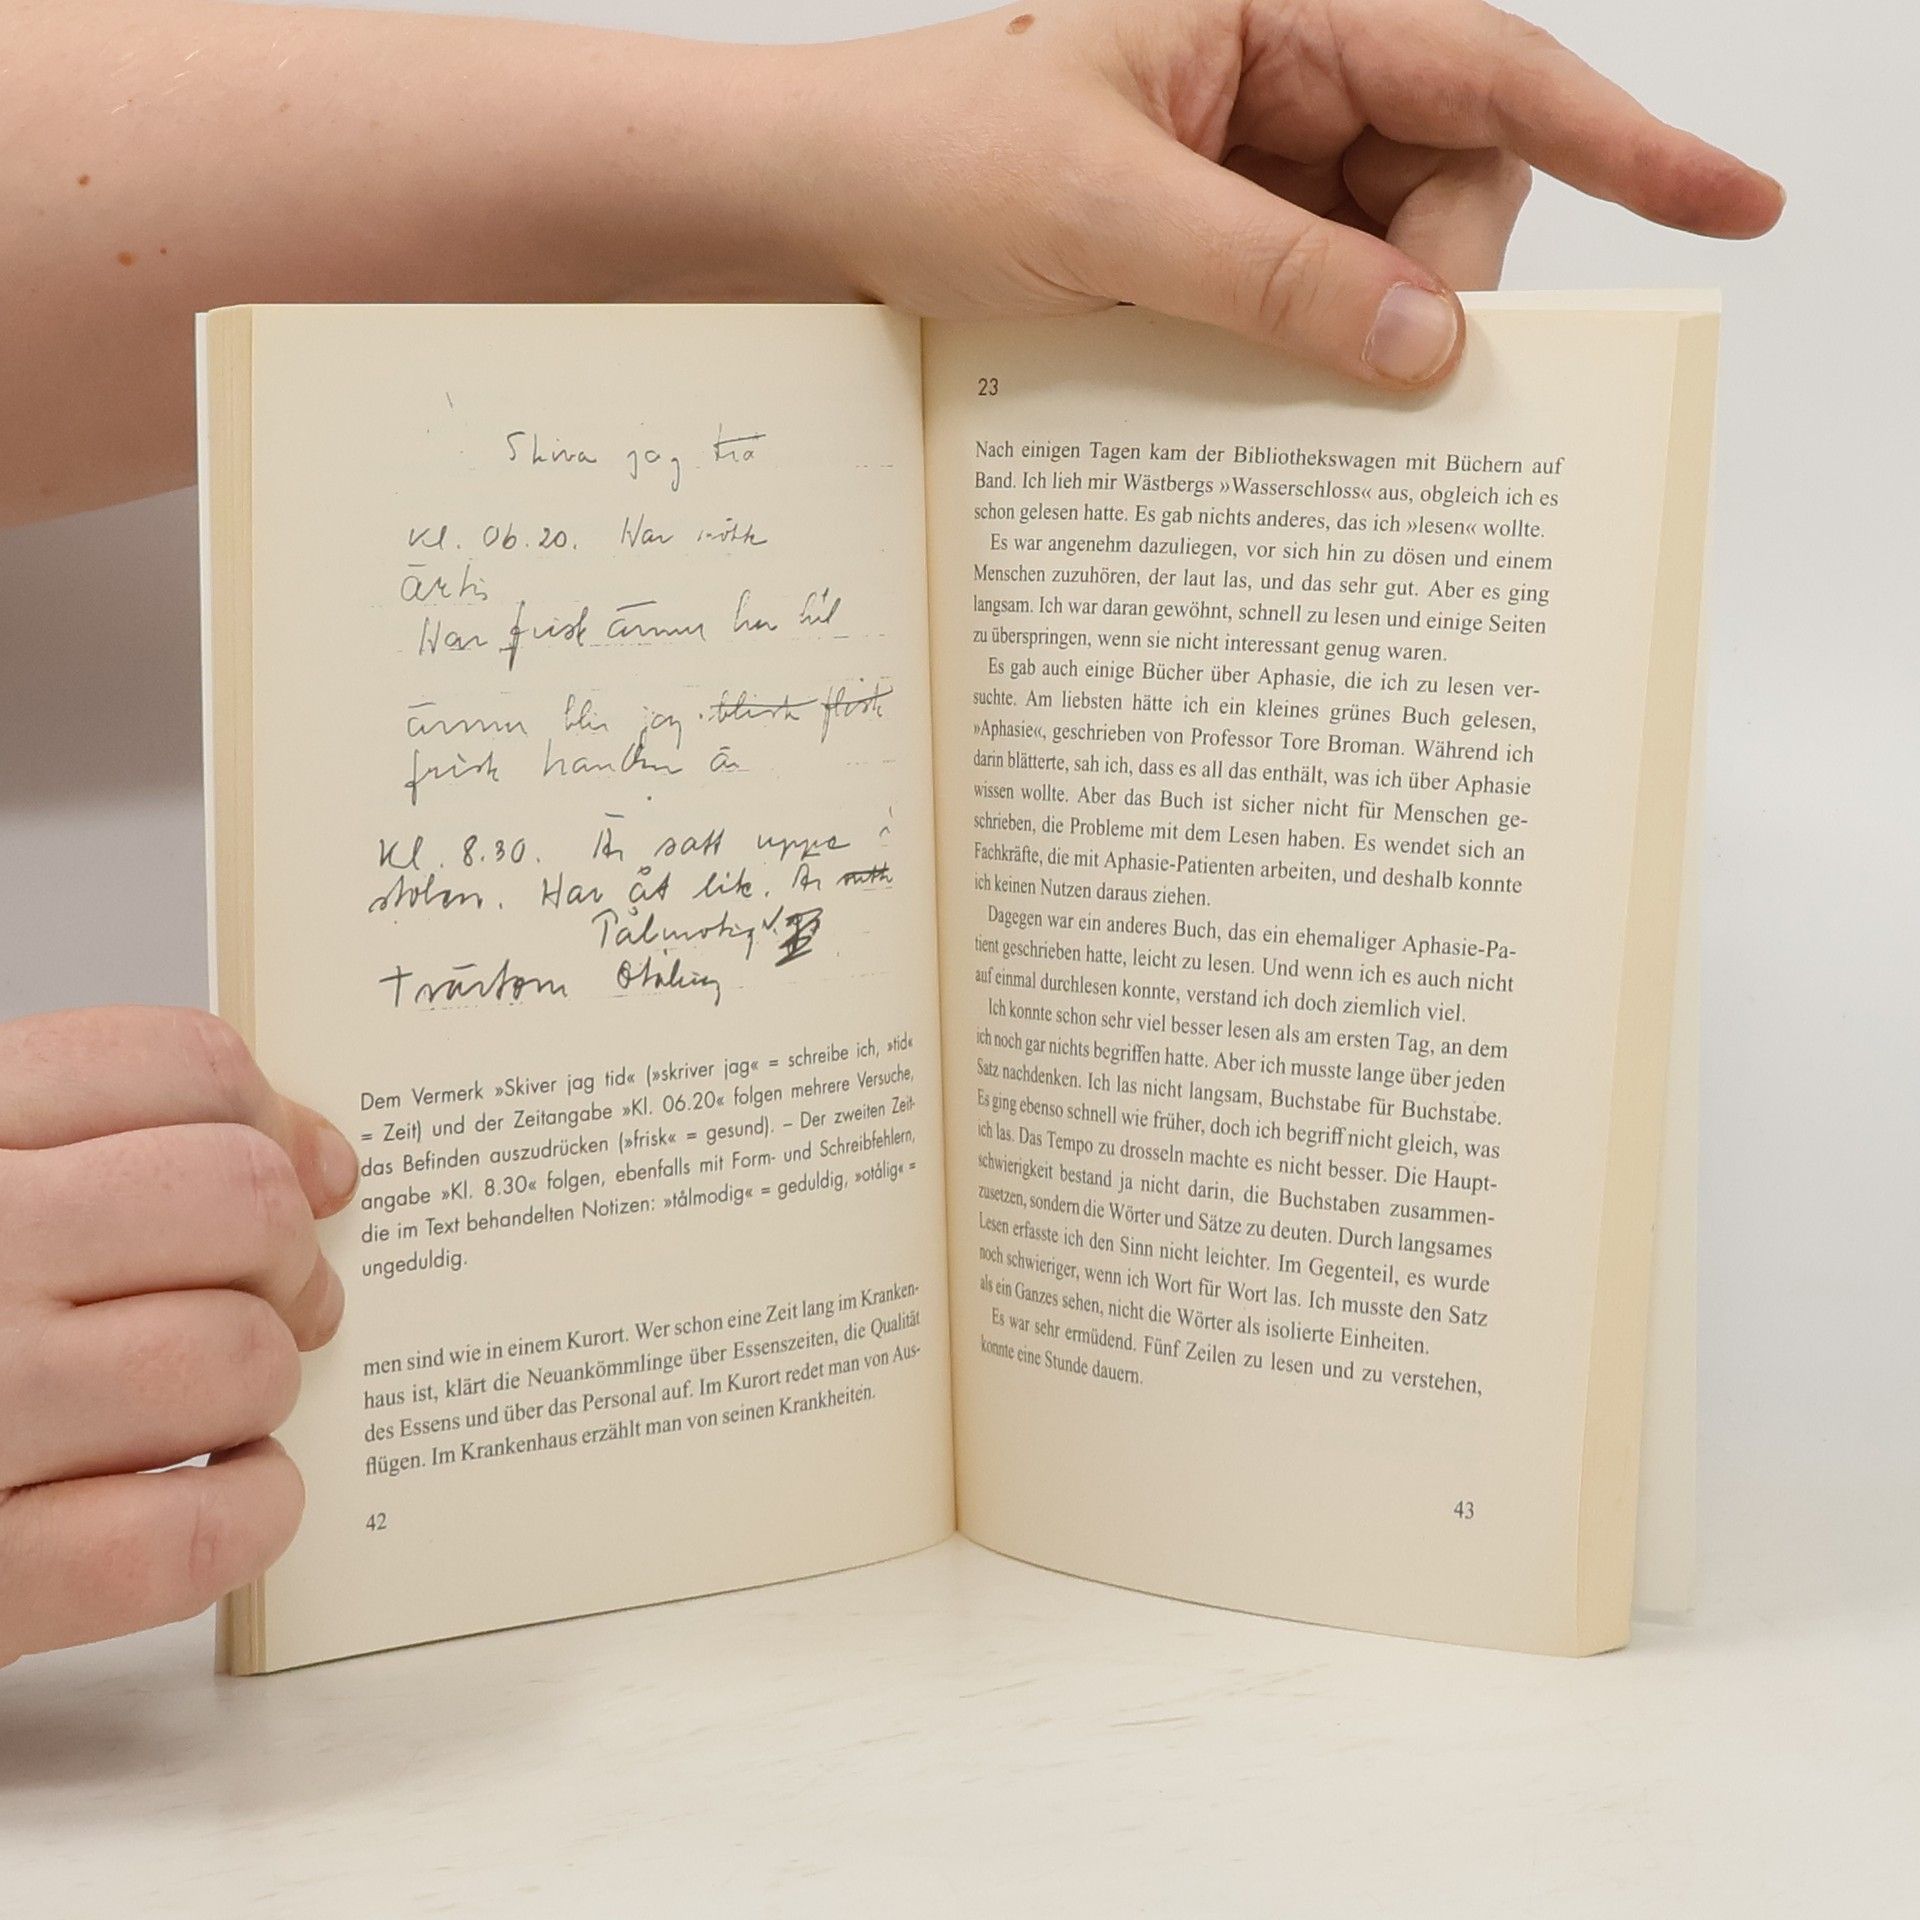 Skiva jag
Kl. 06.20. Har
ärtis
Har frisk ännu
ännu blir jag blisk flisk
frisk handen än
Kl. 8.30. Är satt uppe i
stolen. Har åt lite. Är
Pålmotig
Trärtom Otålig
Dem Vermerk »Skiver jag tid« (»skriver jag« = schreibe ich, »tid«
= Zeit) und der Zeitangabe »Kl. 06.20« folgen mehrere Versuche,
das Befinden auszudrücken (»frisk« = gesund). – Der zweiten Zeit-
angabe »Kl. 8.30« folgen, ebenfalls mit Form- und Schreibfehlern,
die im Text behandelten Notizen: »tålmodig« = geduldig, »otålig« =
ungeduldig.
men sind wie in einem Kurort. Wer schon eine Zeit lang im Kranken-
haus ist, klärt die Neuankömmlinge über Essenszeiten, die Qualität
des Essens und über das Personal auf. Im Kurort redet man von Aus-
flügen. Im Krankenhaus erzählt man von seinen Krankheiten.
42
23
Nach einigen Tagen kam der Bibliothekswagen mit Büchern auf
Band. Ich lieh mir Wästbergs »Wasserschloss« aus, obgleich ich es
schon gelesen hatte. Es gab nichts anderes, das ich »lesen« wollte.
Es war angenehm dazuliegen, vor sich hin zu dösen und einem
Menschen zuzuhören, der laut las, und das sehr gut. Aber es ging
langsam. Ich war daran gewöhnt, schnell zu lesen und einige Seiten
zu überspringen, wenn sie nicht interessant genug waren.
Es gab auch einige Bücher über Aphasie, die ich zu lesen ver-
suchte. Am liebsten hätte ich ein kleines grünes Buch gelesen,
»Aphasie«, geschrieben von Professor Tore Broman. Während ich
darin blätterte, sah ich, dass es all das enthält, was ich über Aphasie
wissen wollte. Aber das Buch ist sicher nicht für Menschen ge-
schrieben, die Probleme mit dem Lesen haben. Es wendet sich an
Fachkräfte, die mit Aphasie-Patienten arbeiten, und deshalb konnte
ich keinen Nutzen daraus ziehen.
Dagegen war ein anderes Buch, das ein ehemaliger Aphasie-Pa-
tient geschrieben hatte, leicht zu lesen. Und wenn ich es auch nicht
auf einmal durchlesen konnte, verstand ich doch ziemlich viel.
Ich konnte schon sehr viel besser lesen als am ersten Tag, an dem
ich noch gar nichts begriffen hatte. Aber ich musste lange über jeden
Satz nachdenken. Ich las nicht langsam, Buchstabe für Buchstabe.
Es ging ebenso schnell wie früher, doch ich begriff nicht gleich, was
ich las. Das Tempo zu drosseln machte es nicht besser. Die Haupt-
schwierigkeit bestand ja nicht darin, die Buchstaben zusammen-
zusetzen, sondern die Wörter und Sätze zu deuten. Durch langsames
Lesen erfasste ich den Sinn nicht leichter. Im Gegenteil, es wurde
noch schwieriger, wenn ich Wort für Wort las. Ich musste den Satz
als ein Ganzes sehen, nicht die Wörter als isolierte Einheiten.
Es war sehr ermüdend. Fünf Zeilen zu lesen und zu verstehen,
konnte eine Stunde dauern.
43